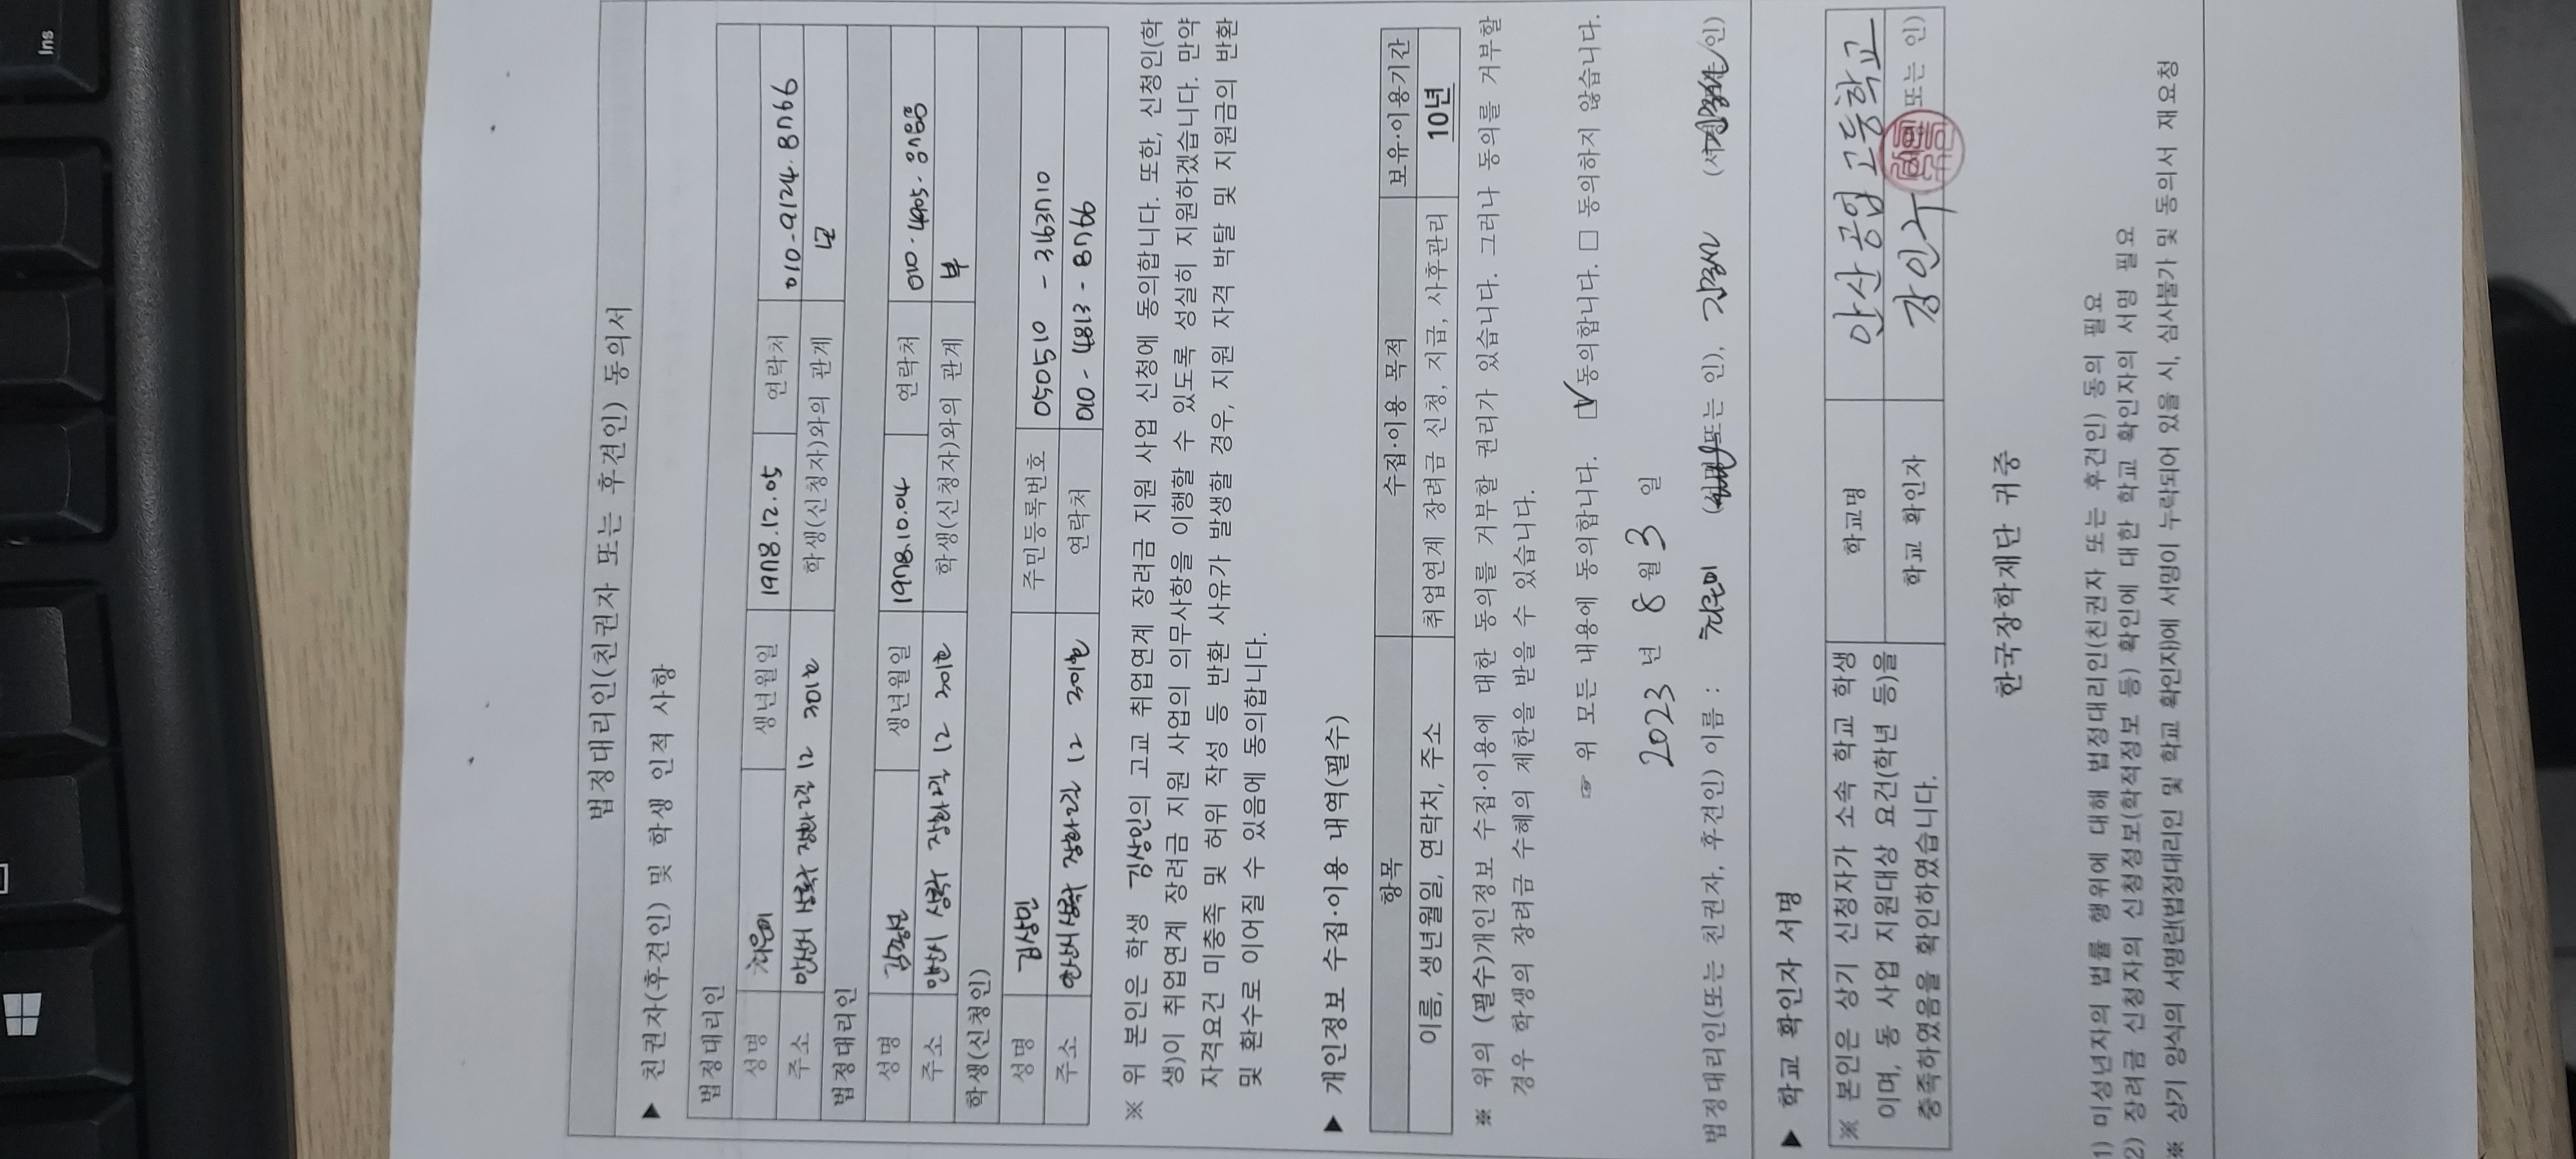 Ins
법정대리인(친권자 또는 후견인) 동의서
▶ 친권자(후견인) 및 학생 인적 사항
법정대리인
성명 최은미 생년월일 1978.12.05 연락처 010-9124-8766
주소 안산시 상록구 장화2길 12 301호 학생(신청자)와의 관계 모
법정대리인
성명 생년월일 1978.10.04 연락처 010-4905-
주소 안산시 상록구 장화2길 12 301호 학생(신청자)와의 관계 부
학생(신청인)
성명 김상민 주민등록번호 050510 - 3163710
주소 안산시 상록구 장화2길 12 301호 연락처 010 - 4813 - 8766
※ 위 본인은 학생 김상민의 고교 취업연계 장려금 지원 사업 신청에 동의합니다. 또한, 신청인(학
생)이 취업연계 장려금 지원 사업의 의무사항을 이행할 수 있도록 성실히 지원하겠습니다. 만약
자격요건 미충족 및 허위 작성 등 반환 사유가 발생할 경우, 지원 자격 박탈 및 지원금의 반환
및 환수로 이어질 수 있음에 동의합니다.
▶ 개인정보 수집·이용 내역(필수)
항목 수집·이용 목적 보유·이용기간
이름, 생년월일, 연락처, 주소 취업연계 장려금 신청, 지급, 사후관리 10년
※ 위의 (필수)개인정보 수집·이용에 대한 동의를 거부할 권리가 있습니다. 그러나 동의를 거부할
경우 학생의 장려금 수혜의 제한을 받을 수 있습니다.
☞ 위 모든 내용에 동의합니다. ☑ 동의합니다. □ 동의하지 않습니다.
2023 년 8 월 3 일
법정대리인(또는 친권자, 후견인) 이름 : 최은미 (서명 또는 인), (서명 또는 인)
▶ 학교 확인자 서명
※ 본인은 상기 신청자가 소속 학교 학생
이며, 동 사업 지원대상 요건(학년 등)을
충족하였음을 확인하였습니다.
학교명 안산공업고등학교
학교 확인자 강인구 (서명 또는 인)
한국장학재단 귀중
1) 미성년자의 법률 행위에 대해 법정대리인(친권자 또는 후견인) 동의 필요
2) 장려금 신청자의 신청정보(학적정보 등) 확인에 대한 학교 확인자의 서명 필요
※ 상기 양식의 서명란(법정대리인 및 학교 확인자)에 서명이 누락되어 있을 시, 심사불가 및 동의서 재요청